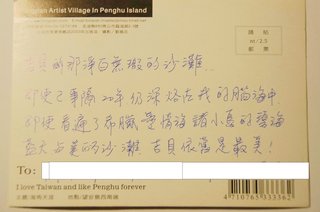 Artist Village In Penghu Island
請貼
nt/2.5
郵票
吉貝嶼那潔白無瑕的沙灘
即使已事隔20年仍深烙在我的腦海中
即使看遍了希臘愛情海諸小島的碧海
藍天與美的沙灘 吉貝依舊是最美!
To:
I love Taiwan and like Penghu forever
4710765333362